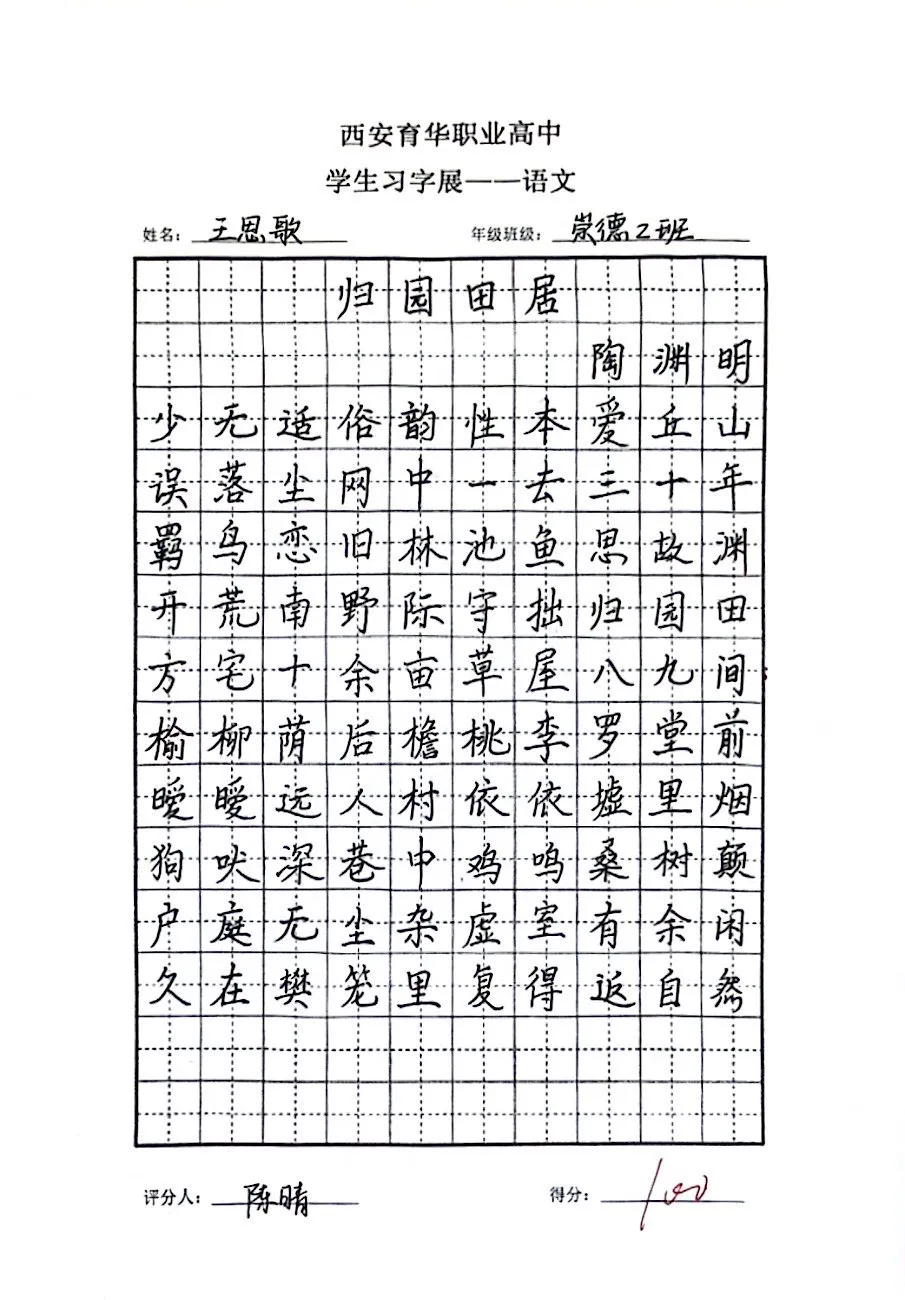 西安育华职业高中
学生习字展——语文
姓名: 王恩歌 年级班级: 崇德2班
归园田居
陶渊明
少无适俗韵性本爱丘山
误落尘网中一去三十年
羁鸟恋旧林池鱼思故渊
开荒南野际守拙归园田
方宅十余亩草屋八九间
榆柳荫后檐桃李罗堂前
暧暧远人村依依墟里烟
狗吠深巷中鸡鸣桑树颠
户庭无尘杂虚室有余闲
久在樊笼里复得返自然
评分人: 陈晴 得分: 100